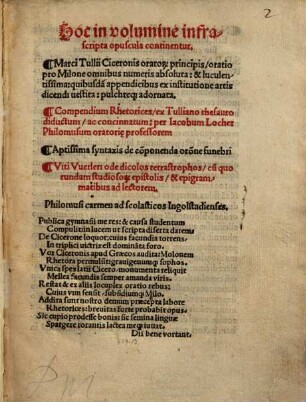 2
Hoc in volumine infra-
scripta opuscula continentur.
¶Marci Tullii Ciceronis oratoꝝ principis/oratio
pro Milone omnibus numeris absoluta: & luculen-
tissima: quibusdā appendicibus ex institutione artis
dicendi vestita: pulchreqꝫ adornata.
¶Compendium Rhetorices/ex Tulliano thesauro
diductum/ac concinnatum: per Iacobum Locher
Philomusum oratorię professorem
¶Aptissima syntaxis de cōponenda orōne funebri
¶Viti Vuerleri ode dicolos tetrastrophos/cū quo
rundam studiosoꝝ epistolis/& epigram-
matibus ad lectorem.
Philomusi carmen ad scolasticos Ingolstadienses.
Publica gymnasii me res: & causa studentum
Compulit in lucem ut scripta diserta darem
De Cicerone loquor: cuius facundia torrens
In triplici victrix est dominata foro.
Vox Ciceronis apud Graecos audita: Molonem
Rhetora permulsit: grauigenumqꝫ sophos.
Vnica spes Latii Cicero: monumenta reliquit
Mellea facundis semper amanda viris.
Restat & ex aliis locuplex oratio rebus:
Cuius vim sensit subsidiumqꝫ Milo.
Addita sunt nostro demum praecepta labore
Rhetorices: breuitas iure probabit opus.
Sic cupio prodesse bonis: sic semina linguę
Spargere rorantis lactea meqꝫ iuuat.
Dii bene vortant.